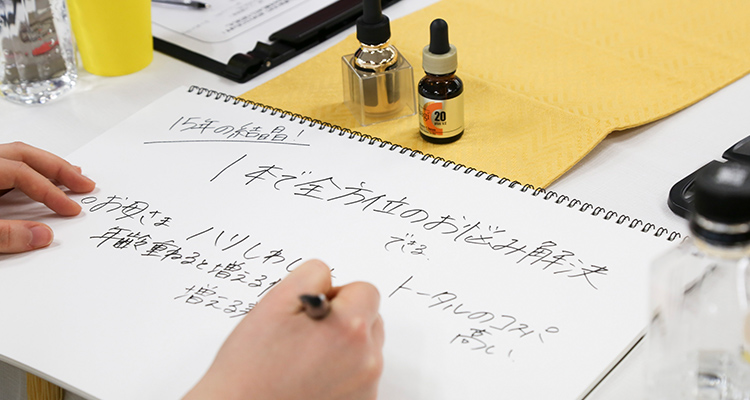 15年の結晶!
1本で全方位のお悩み解決
できる
お母さま ハリしわし
年齢重ねると増える
増える
トータルのコスパ
高い
20